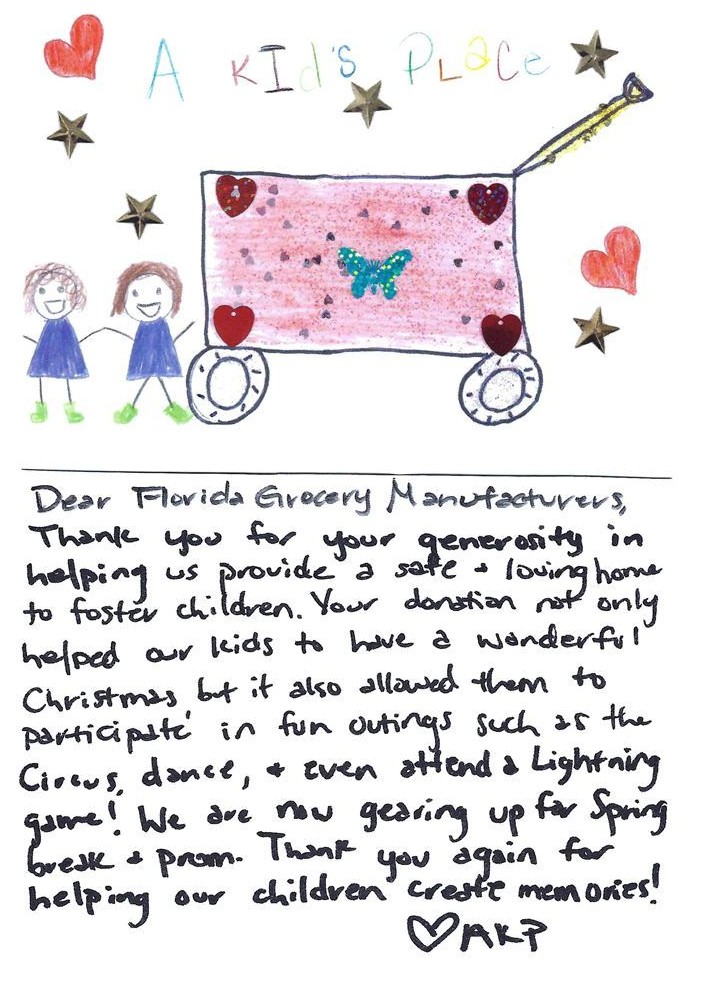 A KId's PLaCe
Dear Florida Grocery Manufacturers,
Thank you for your generosity in
helping us provide a safe + loving home
to foster children. Your donation not only
helped our kids to have a wonderful
Christmas, but it also allowed them to
participate in fun outings such as the
Circus, dance, + even attend a Lightning
game! We are now gearing up for Spring
break + prom. Thank you again for
helping our children create memories!
♡AKP